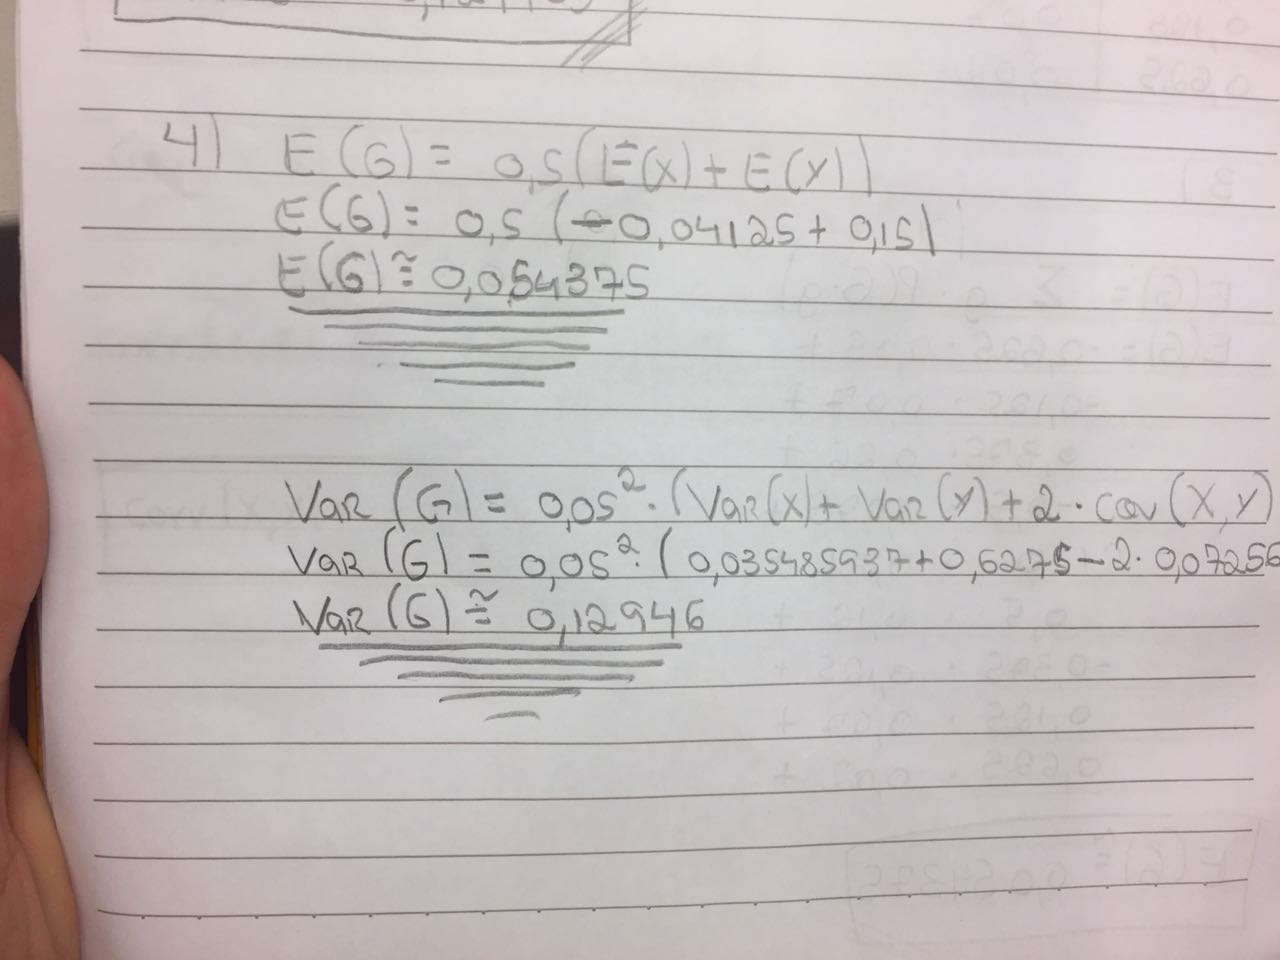 4) E(G) = 0,5(E(X) + E(Y))
E(G) = 0,5 (-0,04125 + 0,15)
E(G) ≅ 0,054375
VAR (G) = 0,05² · (VAR(X) + VAR(Y) + 2 · cov (X,Y)
VAR (G) = 0,05² · (0,035485937 + 0,6275 - 2 · 0,07256
VAR (G) ≅ 0,12946